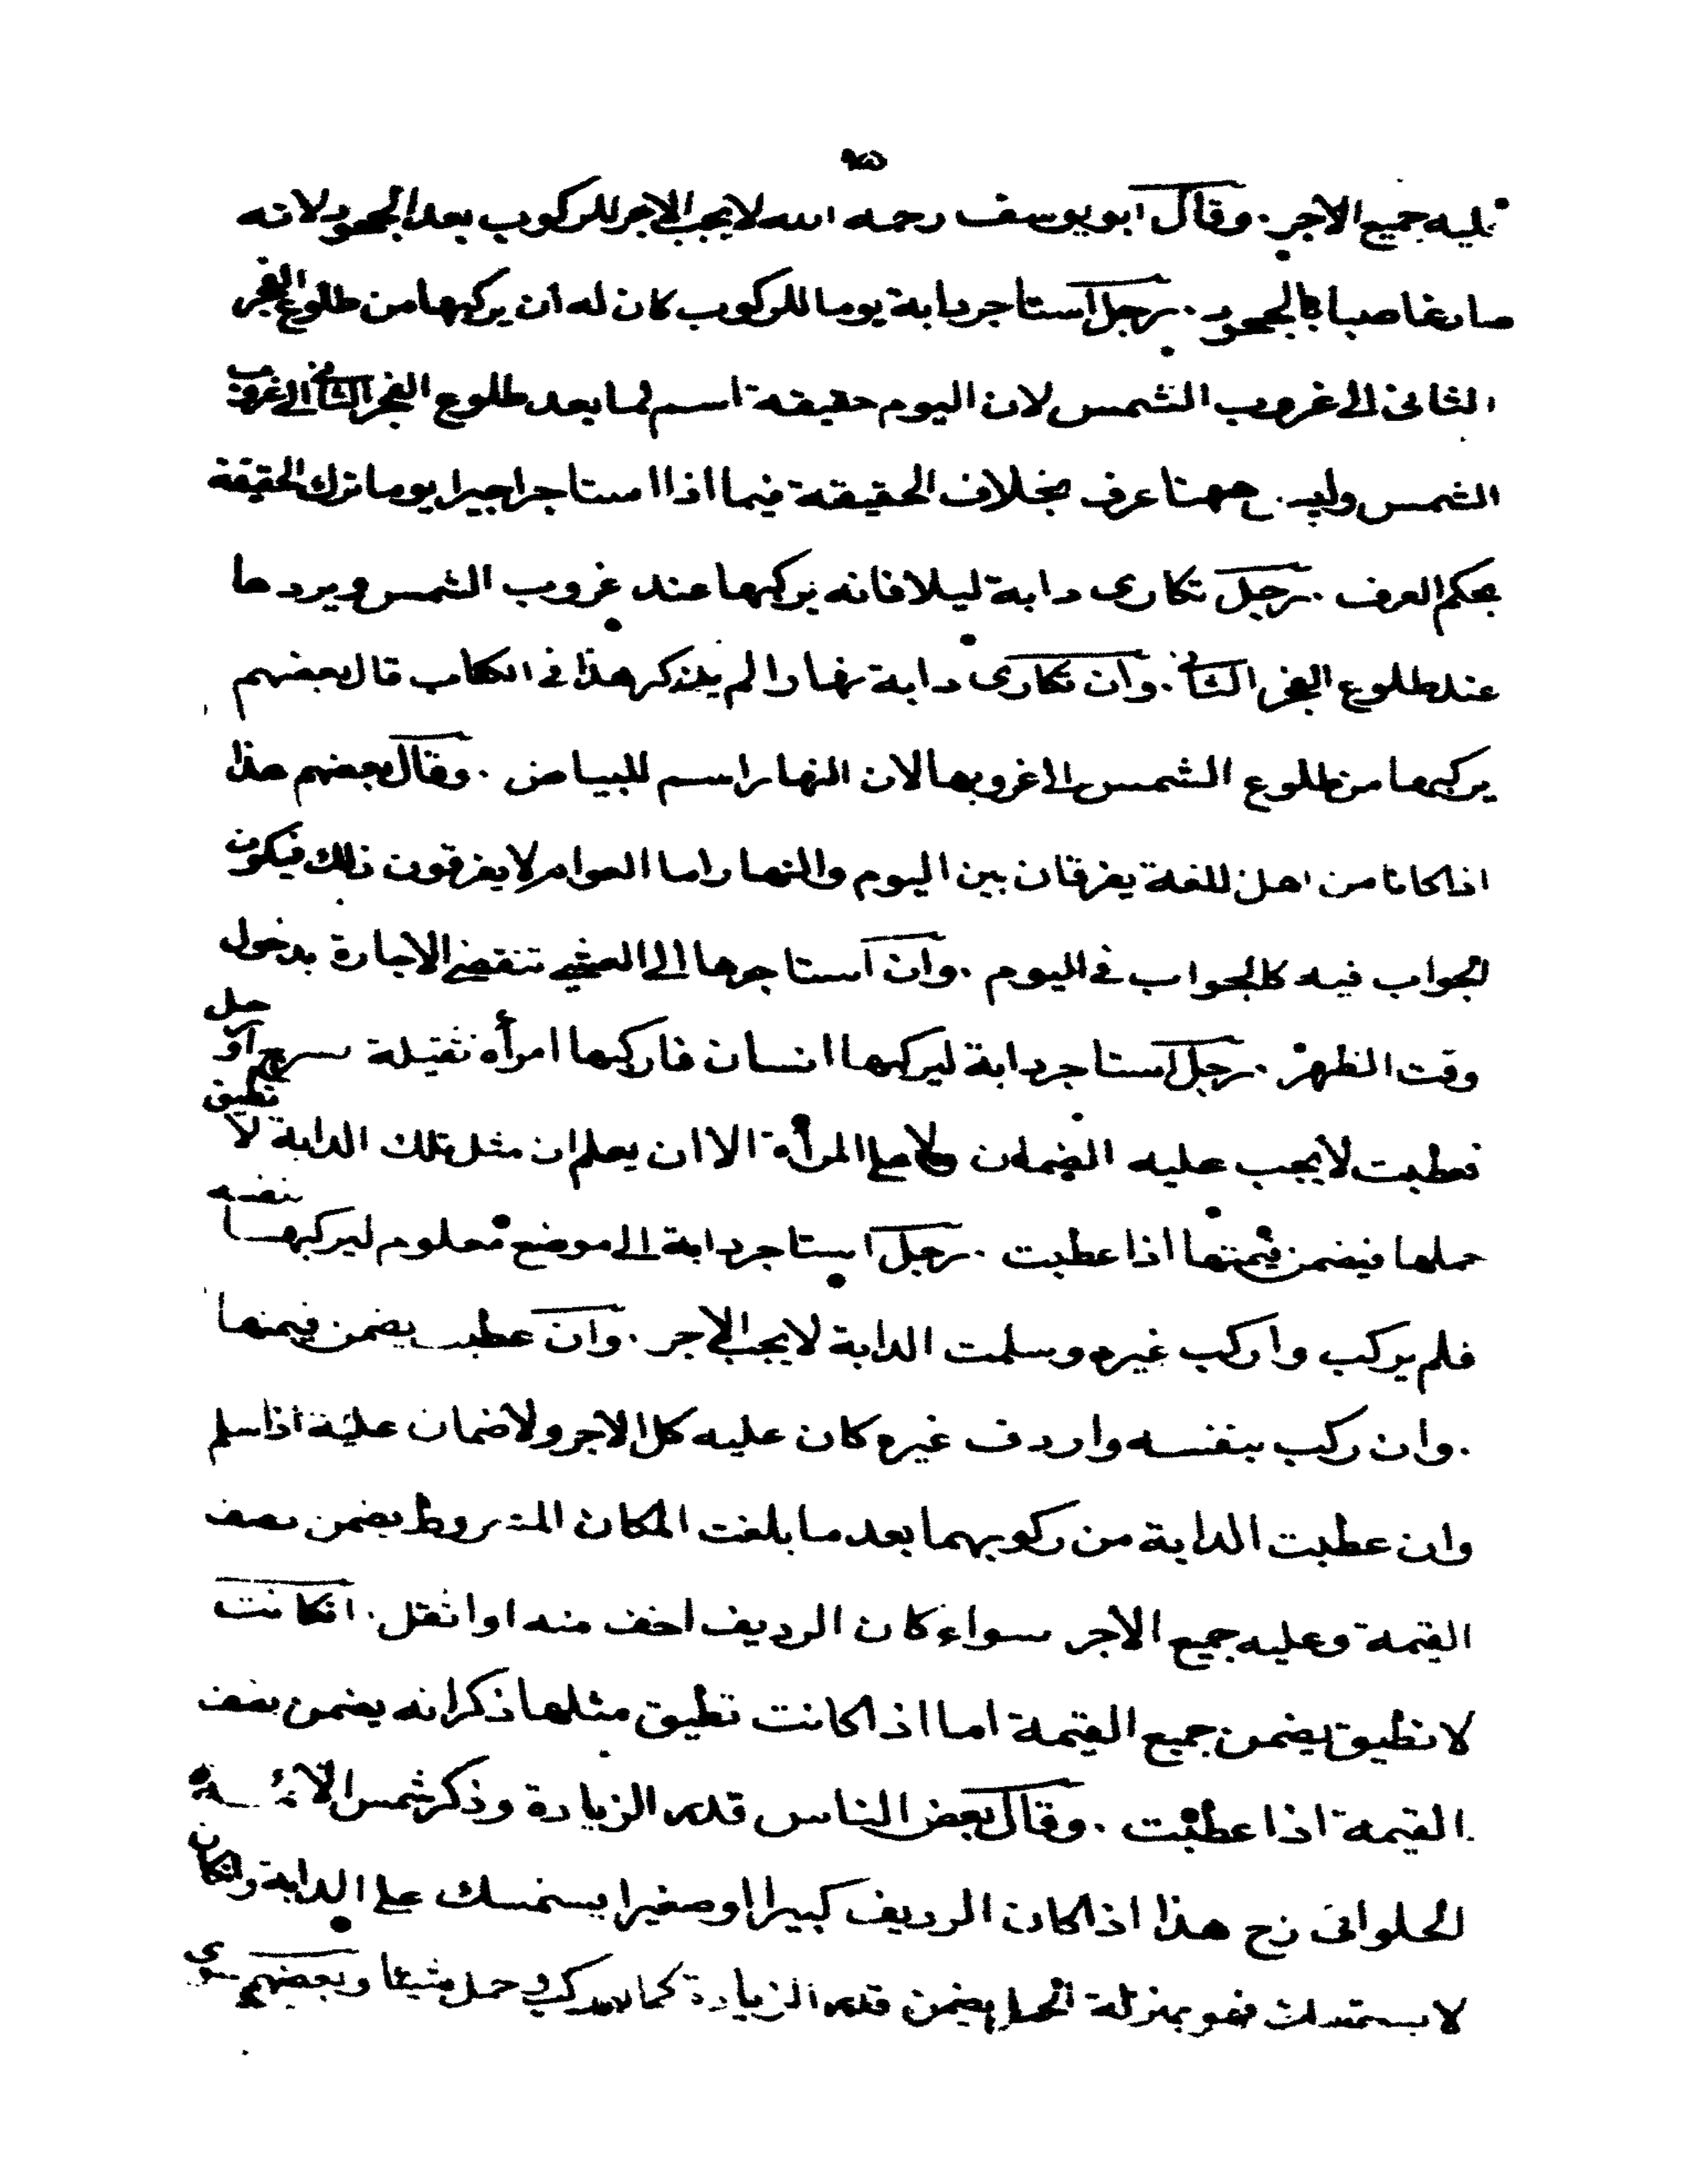 عليه جميع الاجر. وقال ابو يوسف رحمه الله لا يجب الاجر للركوب بعد الجحود لانه
صار غاصبا بالجحود. رجل استاجر دابة يوما للركوب كان له ان يركبها من طلوع الفجر
الثانى الى غروب الشمس لان اليوم حقيقة اسم لما بعد طلوع الفجر الثانى الى غروب
الشمس وليس ههنا عرف بخلاف الحقيقة فيما اذا استاجر اجيرا يوما ترك الحقيقة
بحكم العرف. رجل تكارى دابة ليلا فانه يركبها عند غروب الشمس ويردها
عند طلوع الفجر الثانى. وان تكارى دابة نهارا لم يذكر هذا فى الكتاب قال بعضهم
يركبها من طلوع الشمس الى غروبها لان النهار اسم للبياض. وقال بعضهم هذا
اذا كانا من اهل اللغة يفرقان بين اليوم والنهار اما العوام لا يفرقون ذلك فيكون
الجواب فيه كالجواب فى اليوم. وان استاجرها الى العشى تنقضى الاجارة بدخول
وقت الظهر. رجل استاجر دابة ليركبها انسان فاركبها امرأة ثقيلة بسرج او رحل
فعطبت لا يجب عليه الضمان ولا على المرأة الا ان يعلم ان مثل تلك الدابة لا تطيق
حملها فيضمن قيمتها اذا عطبت. رجل استاجر دابة الى موضع معلوم ليركبها بنفسه
فلم يركب واركب غيره وسلمت الدابة لا يجب الاجر. وان عطبت يضمن قيمتها
. وان ركب بنفسه واردف غيره كان عليه كل الاجر ولا ضمان عليه اذا سلم
وان عطبت الدابة من ركوبهما بعد ما بلغت المكان المشروط يضمن نصف
القيمة وعليه جميع الاجر سواء كان الرديف اخف منه او اثقل. انكانت
لا تطيق يضمن جميع القيمة اما اذا كانت تطيق مثلها ذكر انه يضمن نصف
القيمة اذا عطبت. وقال بعض الناس قدر الزيادة وذكر شمس الائمة
الحلوانى رح هذا اذا كان الرديف كبيرا او صغيرا يستمسك على الدابة وانكان
لا يستمسك فهو بمنزلة الحمل يضمن قدر الزيادة كما لو ركب وحمل شيئا وبعضهم